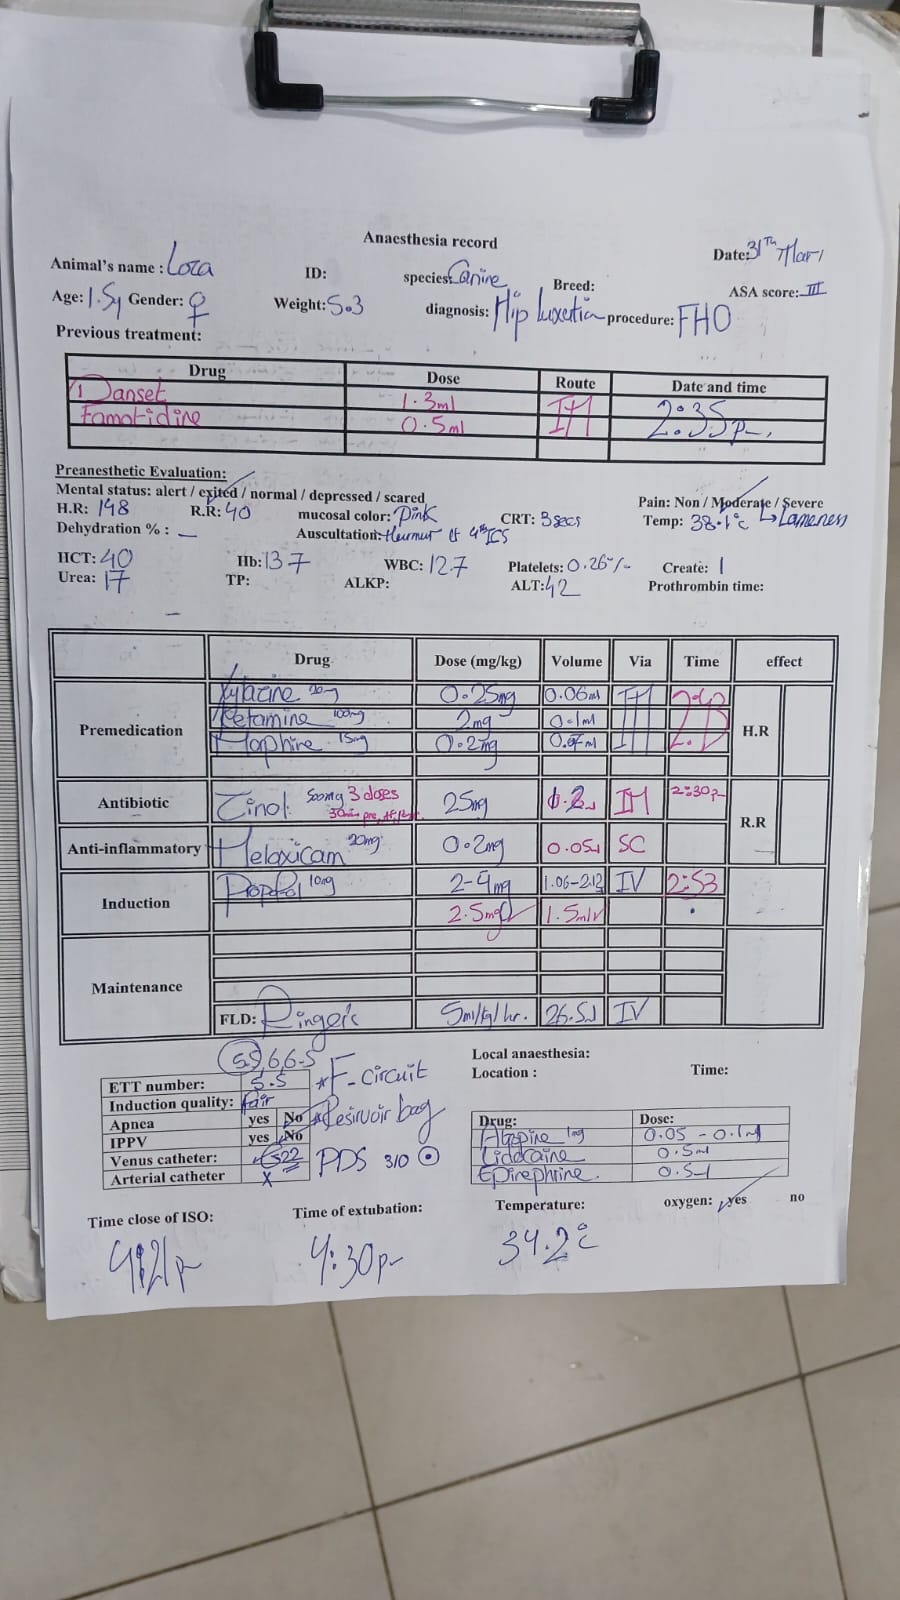 Anaesthesia record
Date: 31Th Mar
Animal's name : Loza ID: species: Canine Breed: ASA score: III
Age: 1.5y Gender: ♀ Weight: 5.3 diagnosis: Hip Luxection procedure: FHO
Previous treatment:
Drug Dose Route Date and time
Danset 1.3ml IM 2:35pm.
Famotidine 0.5ml
Preanesthetic Evaluation:
Mental status: alert / exited / normal / depressed / scared Pain: Non / Moderate / Severe
H.R: 148 R.R: 40 mucosal color: Pink CRT: 3secs Temp: 38.1°c ↳ Lameness
Dehydration % : _ Auscultation: Heurmur 4th ICS
HCT: 40 Hb: 13.7 WBC: 12.7 Platelets: 0.26% Create: 1
Urea: 17 TP: ALKP: ALT: 42 Prothrombin time:
Drug Dose (mg/kg) Volume Via Time effect
Premedication Xylazine 20mg 0.25mg 0.06ml IM H.R
Ketamine 100mg 2mg 0.1ml
Morphine 15mg 0.2mg 0.07ml
Antibiotic Zinol 500mg 3 doses 25mg IM 2:30p R.R
30min pre,
Anti-inflammatory Meloxicam 20mg 0.2mg 0.05ml SC
Induction Propofol 10mg 2-4mg 1.06-2.12 IV 2:53
2.5mg 1.5ml
Maintenance
FLD: Ringer's 5ml/kg/hr. 26.5ml IV
5.5, 6, 6.5
ETT number: 5.5 *F-circuit
Induction quality: fair
Apnea yes No *Resirvoir bag
IPPV yes No
Venus catheter: G22 PDS 3/0
Arterial catheter X
Local anaesthesia:
Location : Time:
Drug: Dose:
Atropine 1mg 0.05 - 0.1ml
Lidocaine 0.5ml
Epirephrine. 0.5ml
Time close of ISO: Time of extubation: Temperature: oxygen: yes no
4:21p 4:30p 34.2°c